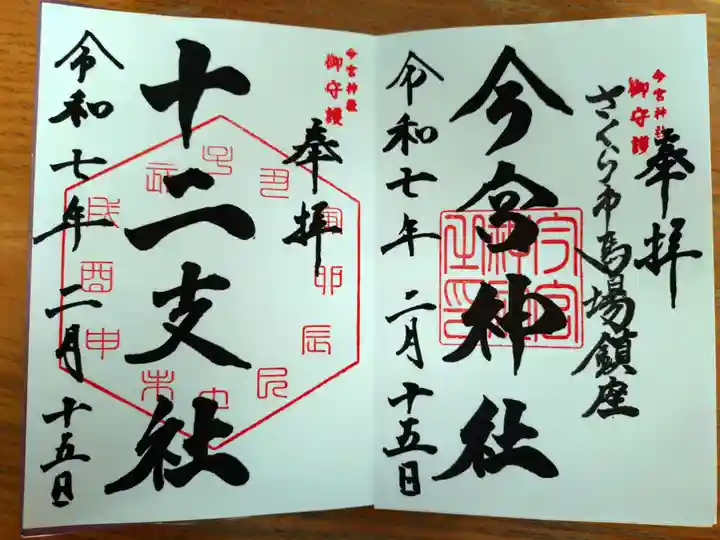 今宮神社
御守護
奉拝
さくら市馬場鎮座
今宮神社
今宮神社印
令和七年 二月 十五日
今宮神社
御守護
奉拝
十二支社
子
丑
寅
卯
辰
巳
未
申
酉
戌
亥
令和七年 二月 十五日